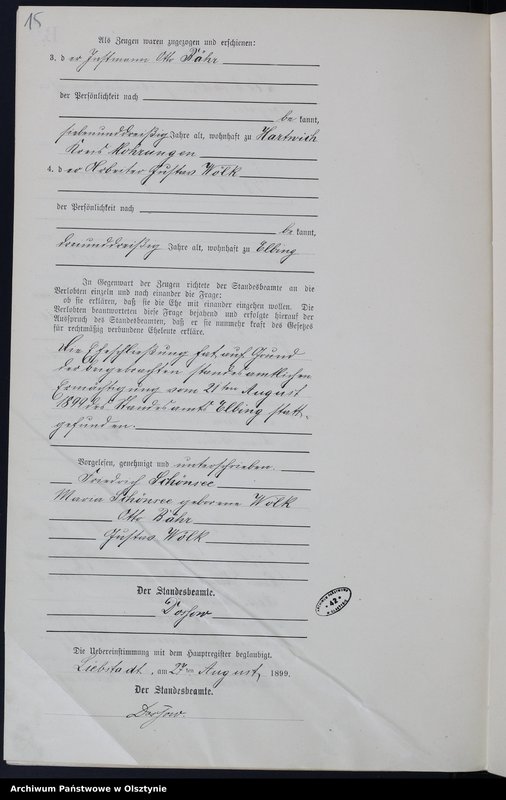 15
Als Zeugen waren zugezogen und erschienen:
3. der Instmann Otto Bähr
der Persönlichkeit nach
be kannt,
siebenunddreißig Jahre alt, wohnhaft zu Hartwich
Kreis Mohrungen
4. der Arbeiter Gustav Wölk
der Persönlichkeit nach
be kannt,
dreiunddreißig Jahre alt, wohnhaft zu Elbing
In Gegenwart der Zeugen richtete der Standesbeamte an die
Verlobten einzeln und nach einander die Frage:
ob sie erklären, daß sie die Ehe mit einander eingehen wollen. Die
Verlobten beantworteten diese Frage bejahend und erfolgte hierauf der
Ausspruch des Standesbeamten, daß er sie nunmehr kraft des Gesetzes
für rechtmäßig verbundene Eheleute erkläre.
Die Eheschließung hat auf Grund
der angebrachten standesamtlichen
Ermächtigung vom 21ten August
1899 des Standesamts Elbing statt-
gefunden.
Vorgelesen, genehmigt und unterschrieben.
Friedrich Schönsee
Maria Schönsee geborene Wölk
Otto Bähr
Gustav Wölk
Der Standesbeamte.
Die Uebereinstimmung mit dem Hauptregister beglaubigt.
Liebstadt, am 27ten August 1899.
Der Standesbeamte.
42
Archiwum Państwowe w Olsztynie